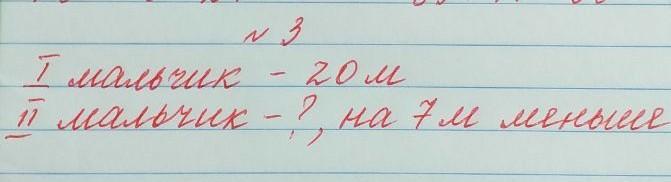 № 3
I мальчик - 20 м
II мальчик - ?, на 7 м меньше